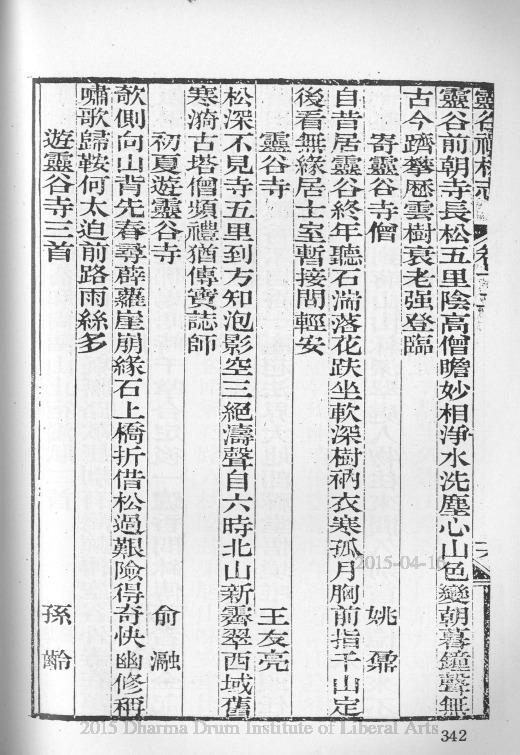 靈谷禪林志
靈谷前朝寺長松五里陰高僧瞻妙相淨水洗塵心山色變朝暮鐘聲無
古今躋攀歷雲樹衰老强登臨
寄靈谷寺僧 姚鼐
自昔居靈谷終年聽石湍落花趺坐軟深樹衲衣寒孤月胸前指千山定
後看無緣居士室暫接問輕安
靈谷寺 王友亮
松深不見寺五里到方知泡影空三絕濤聲自六時北山新霽翠西域舊
寒漪古塔僧頻禮猶傳寶誌師
初夏遊靈谷寺 俞瀜
欹側向山背先春尋薜蘿崖崩緣石上橋折借松過艱險得奇快幽修稱
嘯歌歸鞍何太迫前路雨絲多
遊靈谷寺三首 孫齡
342
2015-04-16
2015 Dharma Drum Institute of Liberal Arts